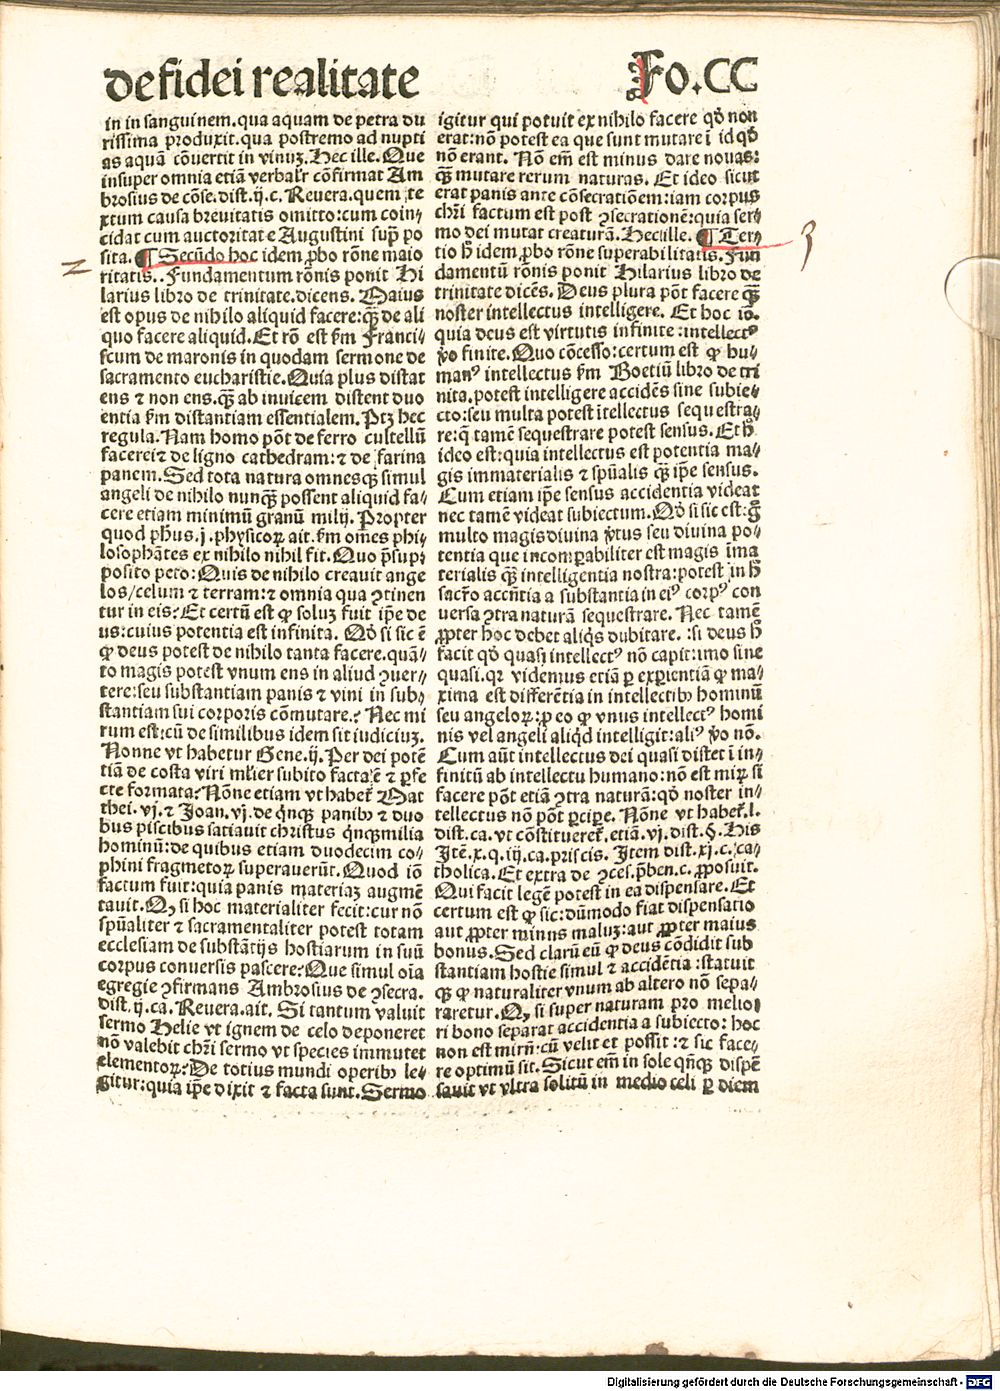 de fidei realitate
Fo.CC
in in sanguinem.qua aquam de petra du
rissima produxit.qua postremo ad nupti
as aquā cōuertit in vinuʒ.Hec ille.Que
insuper omnia etiā verbalr̄ cōfirmat Am
brosius de cōse.dist.ij.c.Reuera.quem te
xtum causa breuitatis omitto:cum coin⸗
cidat cum auctoritate Augustini supͥ po
sita.¶ Secūdo hoc idem ꝓbo rōne maio
ritatis..Fundamentum rōnis ponit Hi
larius libro de trinitate.dicens.Maius
est opus de nihilo aliquid facere:qꝫ̄ de ali
quo facere aliquid.Et rō est ẜm Franci⸗
scum de maronis in quodam sermone de
sacramento eucharistie.Quia plus distat
ens ⁊ non ens.qꝫ̄ ab inuicem distent duo
entia ẜm distantiam essentialem.Ptꝫ hec
regula.Nam homo pōt de ferro custellū
facere:⁊ de ligno cathedram:⁊ de farina
panem.Sed tota natura omnesqꝫ simul
angeli de nihilo nunqꝫ̄ possent aliquid fa⸗
cere etiam minimū granū milij.Propter
quod ph̄us.j.physicoꝝ ait.ẜm om̄es phi⸗
losophātes ex nihilo nihil fit.Quo p̄sup⸗
posito peto:Quis de nihilo creauit ange
los/celum ⁊ terram:⁊ omnia qua ꝯtinen
tur in eis?Et certū est ꝙ soluʒ fuit ip̄e de
us:cuius potentia est infinita. Qd̓ si sic ē
ꝙ deus potest de nihilo tanta facere.quā⸗
to magis potest vnum ens in aliud ꝯuer⸗
tere:seu substantiam panis ⁊ vini in sub⸗
stantiam sui corporis cōmutare.? Nec mi
rum est:cū de similibus idem sit iudiciuʒ.
Nonne vt habetur Gene.ij.Per dei potē
tiā de costa viri ml̓ier subito facta ē ⁊ ꝑfe
cte formata?Nōne etiam vt habet̓ Mat
thei.vj.⁊ Joan.vj.de qͥnqꝫ panibꝰ ⁊ duo
bus piscibus satiauit christus qͥnqꝫmilia
hominū:de quibus etiam duodecim co⸗
phini fragmetoꝝ superauerūt.Quod iō
factum fuit:quia panis materiaʒ augmē
tauit.Qꝫ si hoc materialiter fecit:cur nō
spūaliter ⁊ sacramentaliter potest totam
ecclesiam de substātijs hostiarum in suū
corpus conuersis pascere?Que simul oīa
egregie ꝯfirmans Ambrosius de ꝯsecra.
dist.ij.ca.Reuera.ait. Si tantum valuit
sermo Helie vt ignem de celo deponeret
nō valebit chr̄i sermo vt species immutet
elementoꝝ?De totius mundi operibꝰ le⸗
gitur:quia ip̄e dixit ⁊ facta sunt.Sermo
igitur qui potuit ex nihilo facere qd̓ non
erat:nō potest ea que sunt mutare ī id qd̓
nō erant. Nō em̄ est minus dare nouas:
qꝫ̄ mutare rerum naturas. Et ideo sicut
erat panis ante cōsecrationēm:iam corpus
chr̄i factum est post ꝯsecrationē:quia ser⸗
mo dei mutat creaturā.Hec ille.¶ Ter⸗
tio h̓ idem ꝓbo rōne superabilitatis.Fun
damentū rōnis ponit Hilarius libro de
trinitate dicēs.Deus plura pōt facere qꝫ̄
noster intellectus intelligere. Et hoc iō.
quia deus est virtutis infinite:intellectꝰ
v̓o finite.Quo cōcesso:certum est ꝙ hu⸗
manꝰ intellectus ẜm Boetiū libro de tri
nita.potest intelligere accidēs sine subie⸗
cto:seu multa potest ītellectus sequestra⸗
re:q̄ tamē sequestrare potest sensus.Et h̓
ideo est:quia intellectus est potentia ma⸗
gis immaterialis ⁊ spūalis qꝫ̄ ip̄e sensus.
Cum etiam ip̄e sensus accidentia videat
nec tamē videat subiectum.Qd̓ si sic est:g̊
multo magis diuina v̓tus seu diuina po⸗
tentia que incomꝑabiliter est magis īma
terialis qꝫ̄ intelligentia nostra:potest in h̓
sacr̄o accn̄tia a substantia in eiꝰ corpꝰ con
uersa ꝯtra naturā sequestrare. Nec tamē
ꝓpter hoc debet aliqͥs dubitare.:si deus h̓
facit qd̓ quasi intellectꝰ nō capit:imo sine
quasi.qr videmus etiā ꝑ exꝑientiā ꝙ ma⸗
xima est differētia in intellectibꝰ hominū
seu angeloꝝ:ꝑ eo ꝙ vnus intellectꝰ homi
nis vel angeli aliqͥd intelligit:aliꝰ v̓o nō.
Cum aūt intellectus dei quasi distet ī in⸗
finitū ab intellectu humano:nō est miꝝ si
facere pōt etiā ꝯtra naturā:qd̓ noster in⸗
tellectus nō pōt ꝑciꝑe. Nōne vt habet̓.l.
dist.ca.vt cōstitueret̓.etiā.vj.dist.§.His
Itē.x.q.iij.ca.priscis. Item dist.xj.c.ca⸗
tholica.Et extra de ꝯces.p̄ben.c.ꝓposuit.
Qui facit legē potest in ea dispensare.Et
certum est ꝙ sic:dūmodo fiat dispensatio
aut ꝓpter minus maluʒ:aut ꝓpter maius
bonus.Sed clarū eū ꝙ deus cōdidit sub
stantiam hostie simul ⁊ accidētia:statuit
qꝫ ꝙ naturaliter vnum ab altero nō sepa⸗
raretur.Qꝫ si super naturam pro melio⸗
ri bono separat accidentia a subiecto:hoc
non est mirū:cū velit et possit:⁊ sic face⸗
re optimū sit.Sicut em̄ in sole qn̄qꝫ dispē
sauit vt vltra solitū in medio celi ꝑ diem
2
3
Digitalisierung gefördert durch die Deutsche Forschungsgemeinschaft - DFG